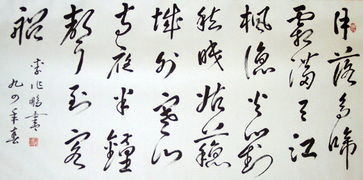 月落乌啼
霜满天江
枫渔火对
愁眠姑苏
城外寒山
寺夜半钟
声到客
船
李作鹏书
九四年春